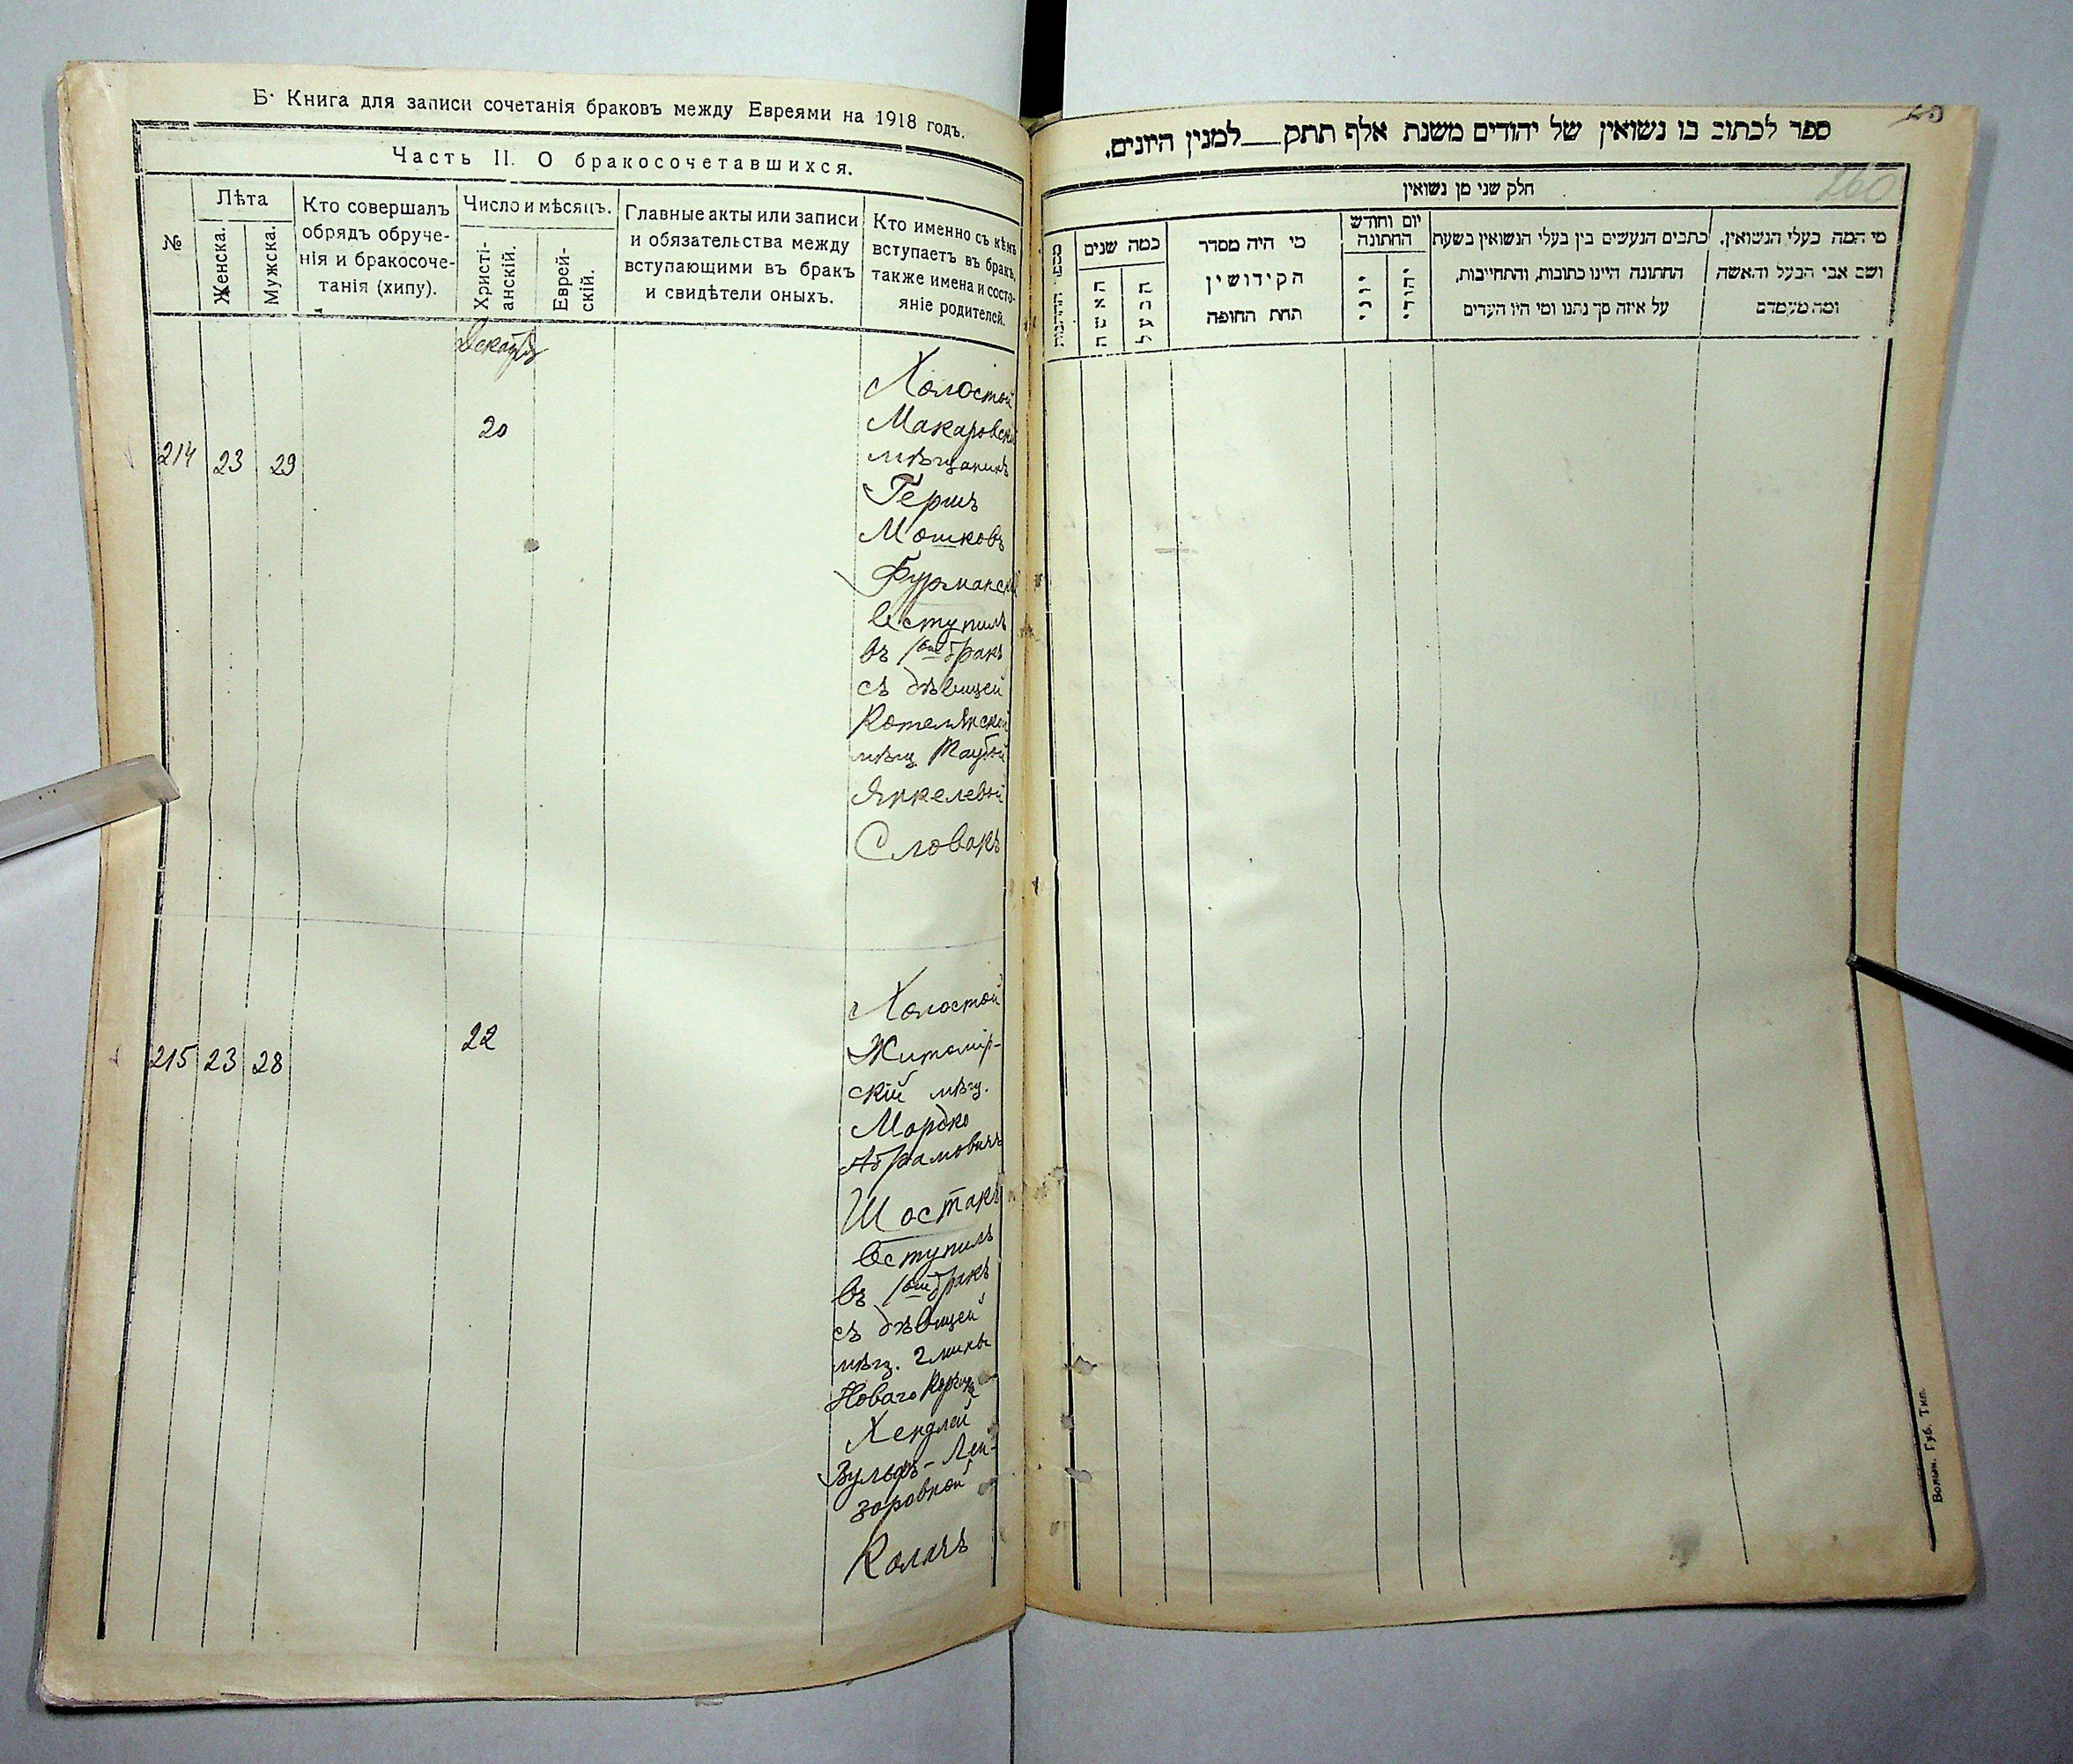 Б. Книга для записи сочетанія браковъ между Евреями на 1918 годъ.
Часть II. О бракосочетавшихся.
№
Лѣта
Женска.
Мужска.
Кто совершалъ
обрядъ обруче-
нія и бракосоче-
танія (хипу).
Число и мѣсяцъ.
Христі-
анскій.
Еврей-
скій.
Главные акты или записи
и обязательства между
вступающими въ бракъ
и свидѣтели оныхъ.
Кто именно съ кѣмъ
вступаетъ въ бракъ,
также имена и состо-
яніе родителей.
214 23 29
20
Холостой
Макаровскій
мѣщанинъ
Гершъ
Мошковъ
Фурманскій
вступилъ
въ 1ый бракъ
съ дѣвицей
Котелянской
мѣщ. Таубой
Янкелевой
Словакъ
215 23 28
22
Холостой
Житомір-
скій мѣщ.
Мордко
Абрамовичъ
Шостакъ
вступилъ
въ 1ый бракъ
съ дѣвицей
мѣщ.
Новаго
Хендлей
Вульфъ-Лей-
зоровной
Колачъ
ספר לכתוב בו נשואין של יהודים משנת אלף תתק — למנין היונים.
260
חלק שני מן נשואין
כמה שנים
האשה
הבעל
מי היה מסדר
הקידושין
תחת החופה
יום וחודש
החתונה
יוני
יהודי
כתבים הנעשים בין בעלי הנשואין בשעת
החתונה היינו כתובות, והתחייבות,
על איזה סך נתנו ומי היו העדים
מי המה בעלי הנשואין,
ושם אבי הבעל והאשה
ומה מעמדם
Волын. Губ. Тип.